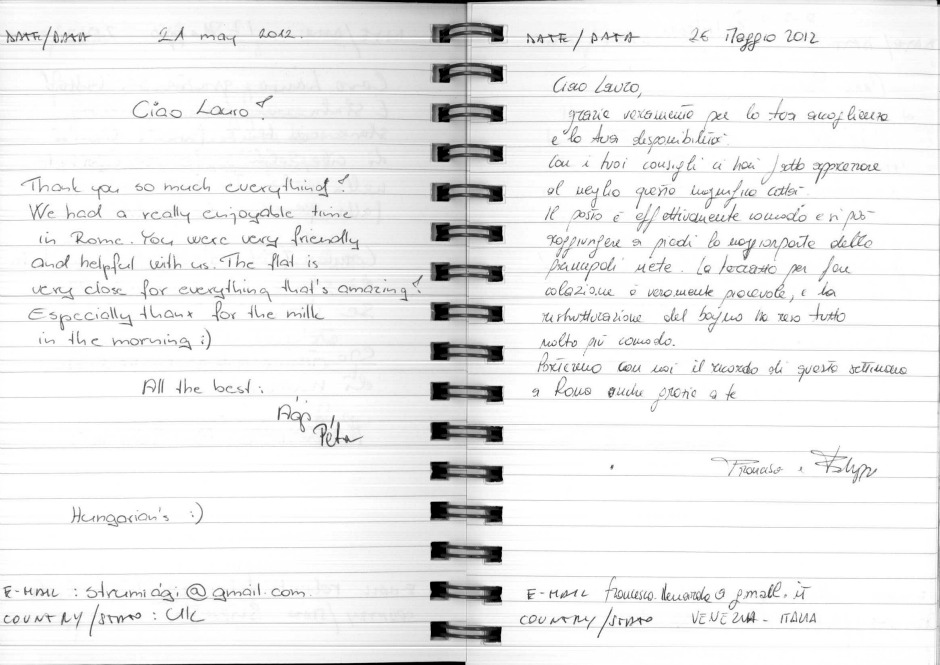 DATE/DATA 21 may 2012.
Ciao Lauro!
Thank you so much everything!
We had a really enjoyable time
in Rome. You were very friendly
and helpful with us. The flat is
very close for everything that's amazing!
Especially thanx for the milk
in the morning :)
All the best:
Ági
Péter
Hungarian's :)
E-MAIL : strumiági@gmail.com.
COUNTRY/STATO : UK
DATE / DATA 26 Maggio 2012
Ciao Lauro,
grazie veramente per la tua accoglienza
e la tua disponibilità.
Con i tuoi consigli ci hai fatto apprezzare
al meglio questa magnifica città.
Il posto è effettivamente comodo e si può
raggiungere a piedi la maggiorparte delle
principali mete. La terrazza per fare
colazione è veramente piacevole, e la
ristrutturazione del bagno ha reso tutto
molto più comodo.
Porteremo con noi il ricordo di questa settimana
a Roma anche grazie a te
Francesco e
E-MAIL @ gmail.it
COUNTRY/STATO VENEZIA - ITALIA